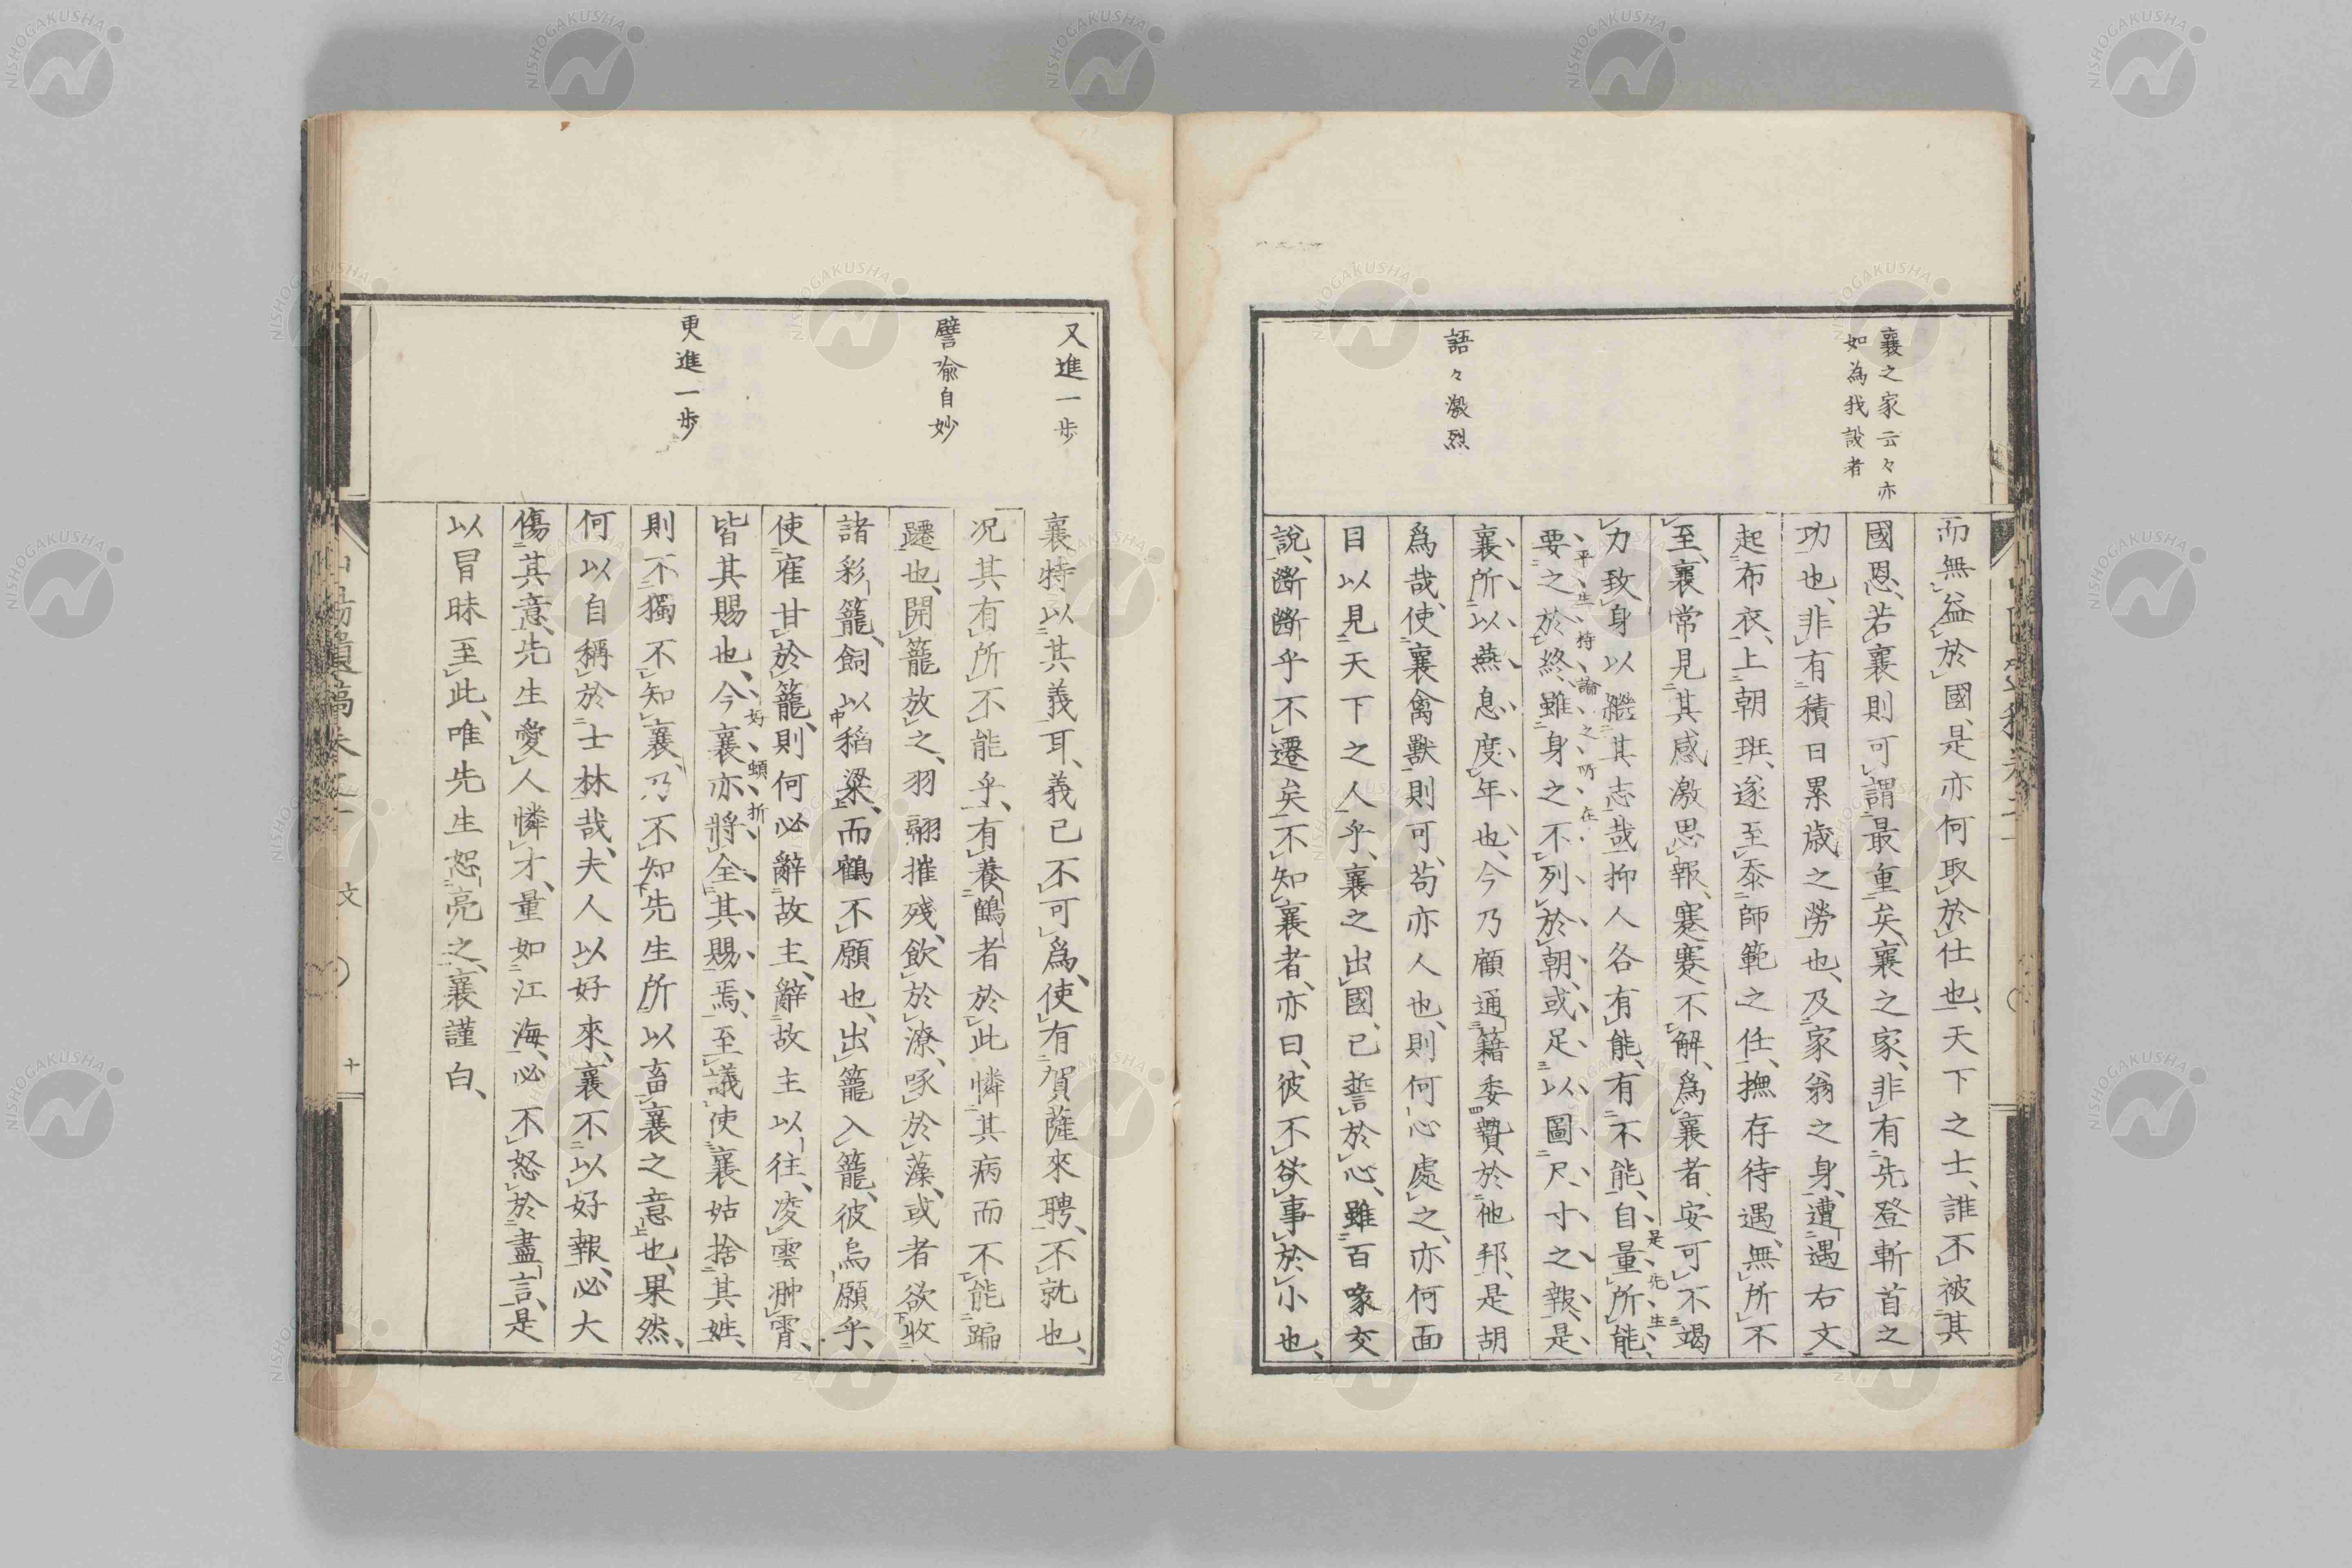 襄之家云々亦
如為我設者
語々激烈
而無益於國、是亦何取於仕也、天下之士、誰不被其
國恩、若襄則可謂最重矣、襄之家、非有先登斬首之
功也、非有積日累歲之勞也、及家翁之身、遭遇右文、
起布衣、上朝班、遂至忝師範之任、撫存待遇、無所不
至、襄常見其感激思報、蹇蹇不解、為襄者、安可不竭
力致身以繼其志哉、抑人各有能、有不能、自量所能、
是先生
平生持論之所在
要之於終、雖身之不列於朝、或足以圖尺寸之報、是
襄所以燕息度年也、今乃顧通籍委贄於他邦、是胡
爲哉、使襄禽獸則可、苟亦人也、則何心處之、亦何面
目以見天下之人乎、襄之出國、已誓於心、雖百喙交
說、斷斷乎不遷矣、不知襄者、亦曰、彼不欲事於小也、
又進一步
譬喩自妙
更進一步
襄特以其義耳、義已不可爲、使有賀薩來聘、不就也、
況其有所不能乎、有養鶴者於此、憐其病而不能蹁
躚也、開籠放之、羽翮摧殘、飲於潦、啄於藻、或者欲收
諸彩籠、飼以稻粱、而鶴不願也、出籠入籠、彼烏願乎、
使雀甘於籠、則何必辭故主、辭故主以往、凌雲沖霄、
皆其賜也、今襄亦將全其賜焉、至議使襄姑捨其姓、
好頓折
則不獨不知襄、乃不知先生所以畜襄之意也、果然、
何以自稱於士林哉、夫人以好來、襄不以好報、必大
傷其意、先生愛人憐才、量如江海、必不怒於盡言、是
以冒昧至此、唯先生恕亮之、襄謹白、
山陽遺稿卷之一
文
十